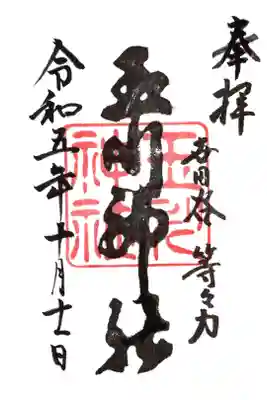 奉拝
世田谷 等々力
玉川神社
玉川神社
令和五年十月十一日